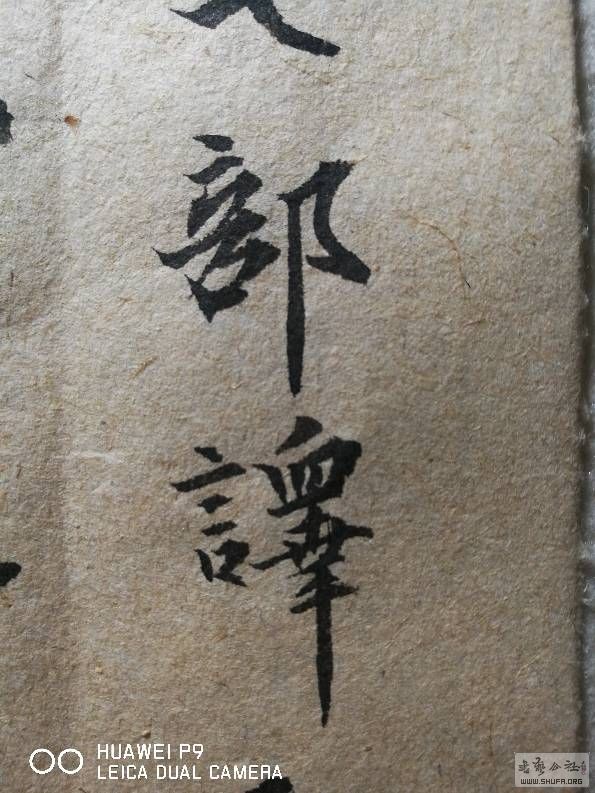 部譯
HUAWEI P9
LEICA DUAL CAMERA
WWW.SHUFA.ORG